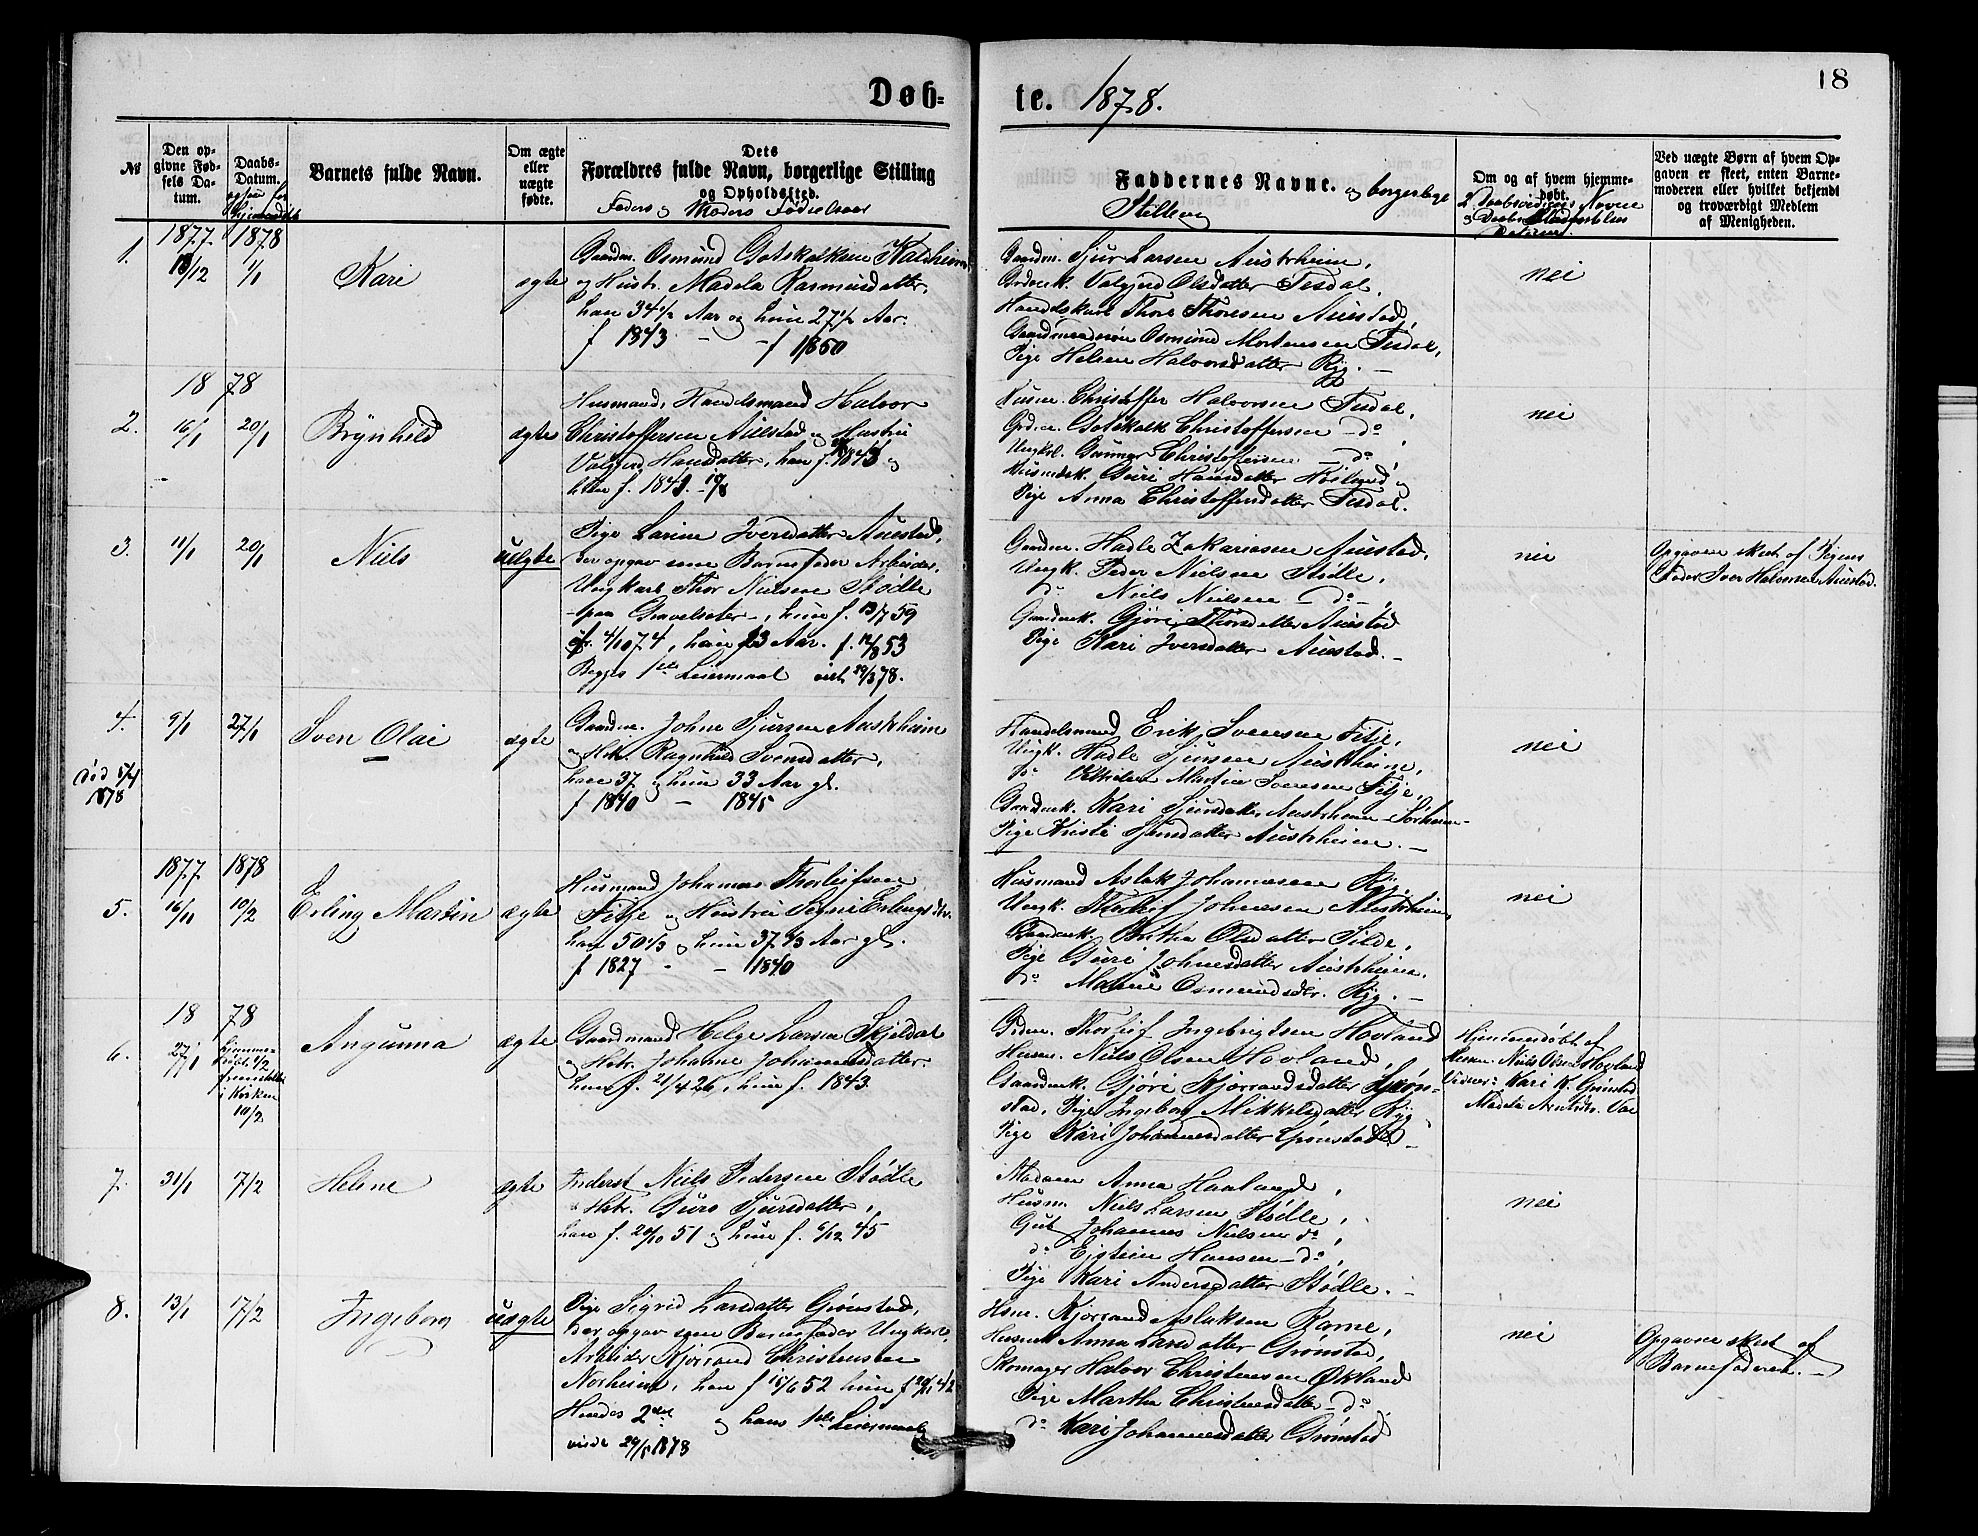 18
Døb-
te. 1878.
№
Den op-
givne Fød-
sels Da-
tum.
Daabs-
Datum.
Barnets fulde Navn.
Om ægte
eller
uægte
fødte.
Dets
Forældres fulde Navn, borgerlige Stilling
og Opholdssted.
Faders og Moders Fødselsaar
Faddernes Navne. og borgerlige
Stilling
Om og af hvem hjemme-
døbt.
Ved uægte Børn af hvem Op-
gaven er skeet, enten Barne-
moderen eller hvilket bekjendt
og troværdigt Medlem
af Menigheden.
1.
1877 1878
13/12 1/1
Kari
ægte
Gaardm. Osmund Gotskalksen
og Hustr. Madela Rasmusdatter,
han 34 1/2 Aar og hun 27 1/2 Aar.
f 1843 - - f 1850
Gaardm. Sjur Larsen Austrheim,
Valgjerd Olsdatter Tesdal,
Thore Thoresen Auestad,
Osmund Mortensen Tesdal,
Pige Helene Halvorsdatter Ryg. -
nei
18 78
2.
16/1 20/1
Brynhild
ægte
Husmand, Handelsmand Halvor
Christoffersen Auestad og Hustru
Valgjerd Hansdatter, han f. 1843 og
hun f. 1843 19/8
Christoffer Halvorsen Tesdal,
Gotskalk Christoffersen - do,
Ungkl. Gunnar Christoffersen - do,
Guri Hansdatter
Pige Anna Christoffersdatter Tesdal.
nei
3.
11/1 20/1
Niels
uægte
Pige Larine Iversdatter Auestad,
der opgav som Barnefader Arbeider,
Ungkarl Thor Nielsen Stødle
paa hun f. 13/7 59
4/10 74, han 23 Aar. f. 12/8 53
Begges 1ste Leiermaal 29/3 78.
Gaardm. Hadle Zakariasen Auestad,
Ungk. Peder Nielsen Stødle,
do Niels Nielsen - do -,
Gaardmk. Gjøri Thorsdatter Auestad
Pige Kari Iversdatter Auestad. -
nei
Opgaven skeet af Pigens
Fader Iver Halvorsen Auestad.
4.
9/1 27/1
død 5/4
1878
Sven Olai
ægte
Gaardm. Johne Sjursen Austrheim
og Hstr. Ragnhild Svensdatter,
han 37 og hun 33 Aar gl.
f 1840 - 1845
Handelsmand Erik Svensen Fitje,
Ungk. Hadle Sjursen Austrheim,
do Martin Svensen Fitje,
Gaardmk. Kari Sjursdatter Austrheim
Pige Kristi Sjursdatter Austrheim. -
nei
1877 1878
5.
16/11 10/2
Erling Martin
ægte
Husmand Johannes Thorleifsen
Fitje og Hustru Signi Erlingsdtr.
han 50 1/3 og hun 37 1/3 Aar gl.
f 1827 - - 1840
Husmand Aslak Johannesen Ryg,
Ungk. Johnesen Austrheim,
Gaardmk. Bertha Olsdatter Silde,
Pige Guri Johnesdatter Austrheim.
do Malene Osmundsdtr. Ryg. -
nei
18 78
6.
27/1
Hjemme-
døbt 1/2
fremstillet
i Kirken
10/2
Angunna
ægte
Gaardmand Helge Larsen Skjeldal
og Hstr. Johanne Johannesdatter.
han f. 21/4 26, hun f. 1843
Gdm. Thorleif Ingebrigtsen Hovland
Husm. Niels Olsen Hovland,
Gaardmk. Gjøri Kjørrandsdatter Grøn-
stad, Pige Ingeborg Mikkelsdatter Ryg
Pige Kari Johannesdatter Grønstad. -
Hjemmedøbt af
Husm. Niels Olsen Hovland
Vidner: Kari K. Grønstad
7.
31/1 17/2
Helene
ægte
Inderst Niels Pedersen Stødle
og Hstr. Guro Sjursdatter,
han f. 20/10 51 og hun f. 6/12 45
Madam Anna Haaland,
Husm. Niels Larsen Stødle,
Gut Johannes Nielsen do,
do Eistein Hansen - do,
Pige Kari Andersdatter Stødle. -
nei
8.
13/1 17/2
Ingeborg
uægte
Pige Sigrid Larsdatter Grønstad,
der opgav som Barnefader Ungkarl,
Arbeider Kjørrand Christensen
Norheim, han f 15/6 52 hun f
Hendes 2det og hans 1ste Leiermaal
24/5 1878
Hsm. Kjørrand Aslaksen Rame,
Anna Larsdatter Grønstad,
Skomager Halvor Christensen Økland
Pige Martha Christensdatter - do
do Kari Johannesdatter Grønstad
nei
Opgaven skeet af
Barnefaderen. -